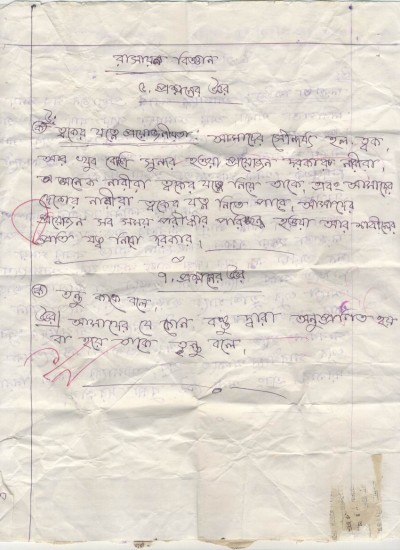 রাসায়ন বিজ্ঞান
৫. প্রশ্নের উঃর
ক) ত্বকের যত্নে প্রয়োজনীয়তা: আমাদের সৌন্দর্য হল ত্বক,
আর খুব বেশি সুন্দর হওয়া প্রয়োজন দরকার নারীরা,
অনেক নারীরা ত্বকের যত্ন নিয়ে তাকে, এবং আমাদের
দেশের নারীরা ত্বকের যত্ন নিতে পারে, আমাদের
প্রয়োজন সব সময় পরীস্কার পরিচ্ছন্ন হওয়া আর শরীলের
প্রতি যত্ন নিয়া দরকার।
৭. প্রশ্নের উঃর
ক) তন্তু কাকে বলে,
উঃর আমাদের যে কোন বস্তু দ্বারা অনুপ্রাণিত হয়
বা হয়ে তাকে তন্তু বলে,